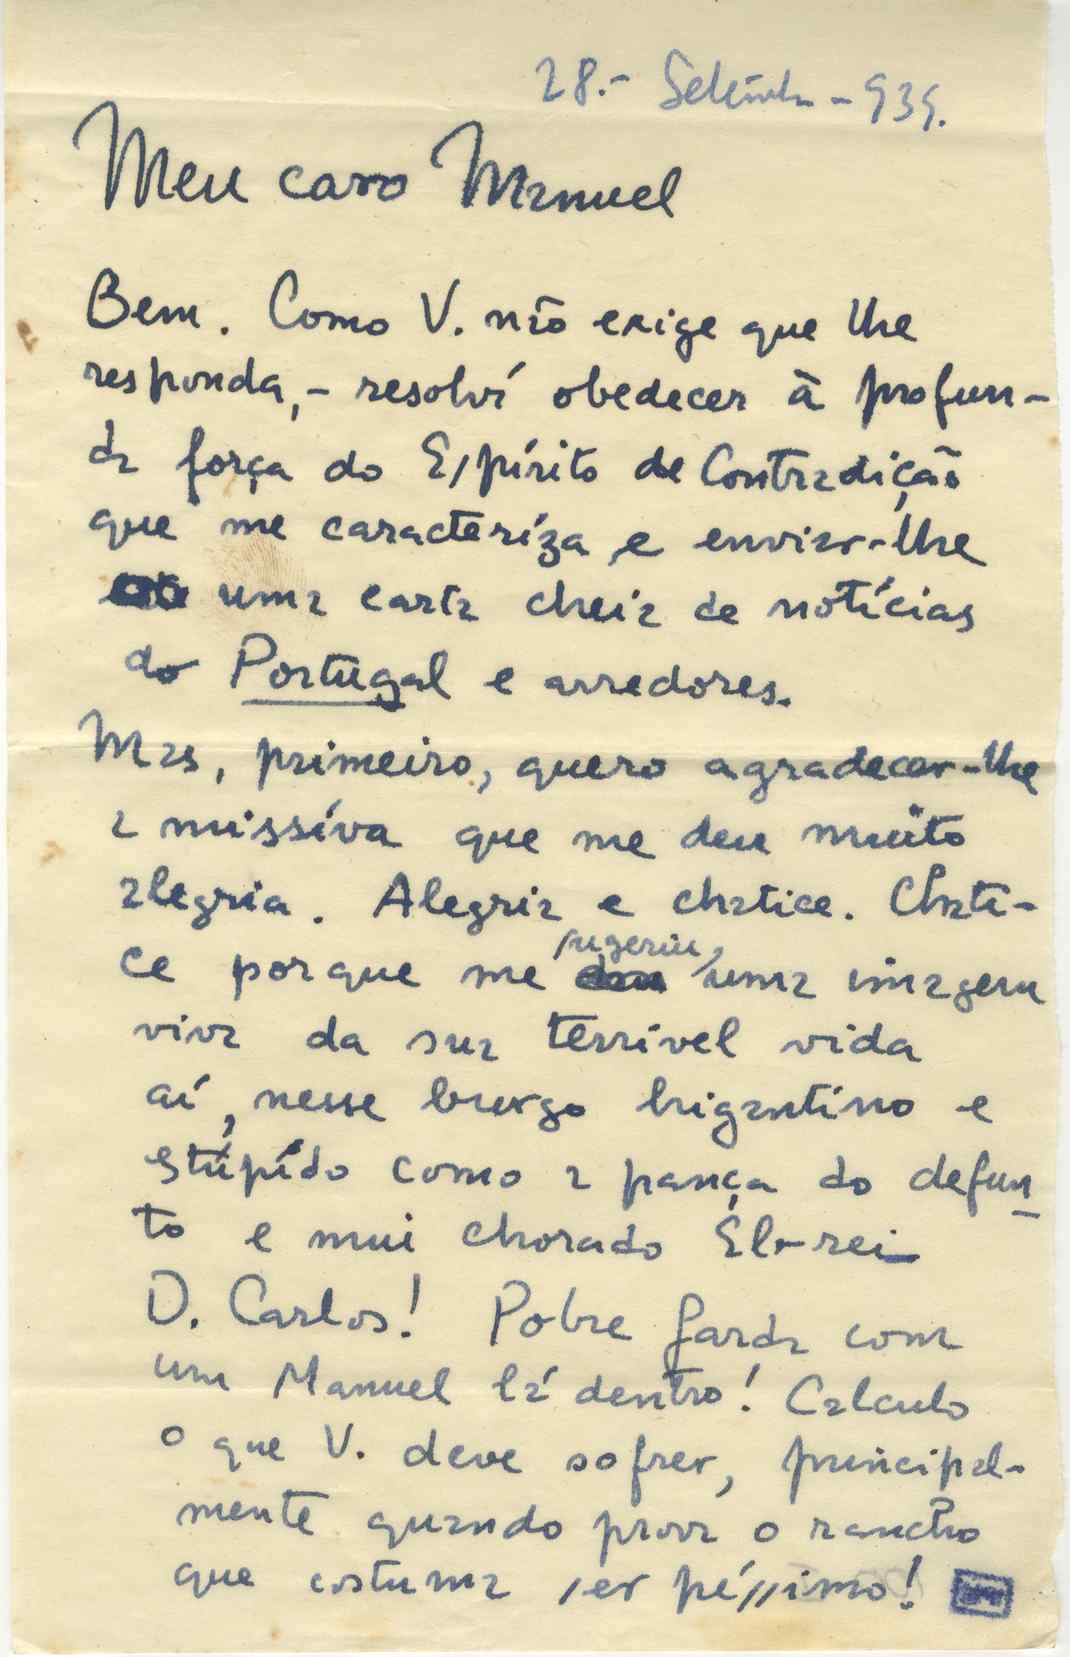 28.- Setembro - 939.
Meu caro Manuel
Bem. Como V. não exige que lhe
responda,- resolví obedecer à profun-
da força do Espírito de Contradição
que me caracteríza e enviar-lhe
uma carta cheia de notícias
do Portugal e arredores.
Mas, primeiro, quero agradecer-lhe
a missíva que me deu muito
alegria. Alegria e chatice. Chati-
ce porque me sugeriu, uma imagem
viva da sua terrível vida
aí, nesse burgo brigantino e
estúpído como a pança do defun-
to e mui chorado Él-rei
D. Carlos! Pobre farda com
um Manuel lá dentro! Calculo
o que V. deve sofrer, principal-
mente quando prova o rancho
que costuma ser péssimo!